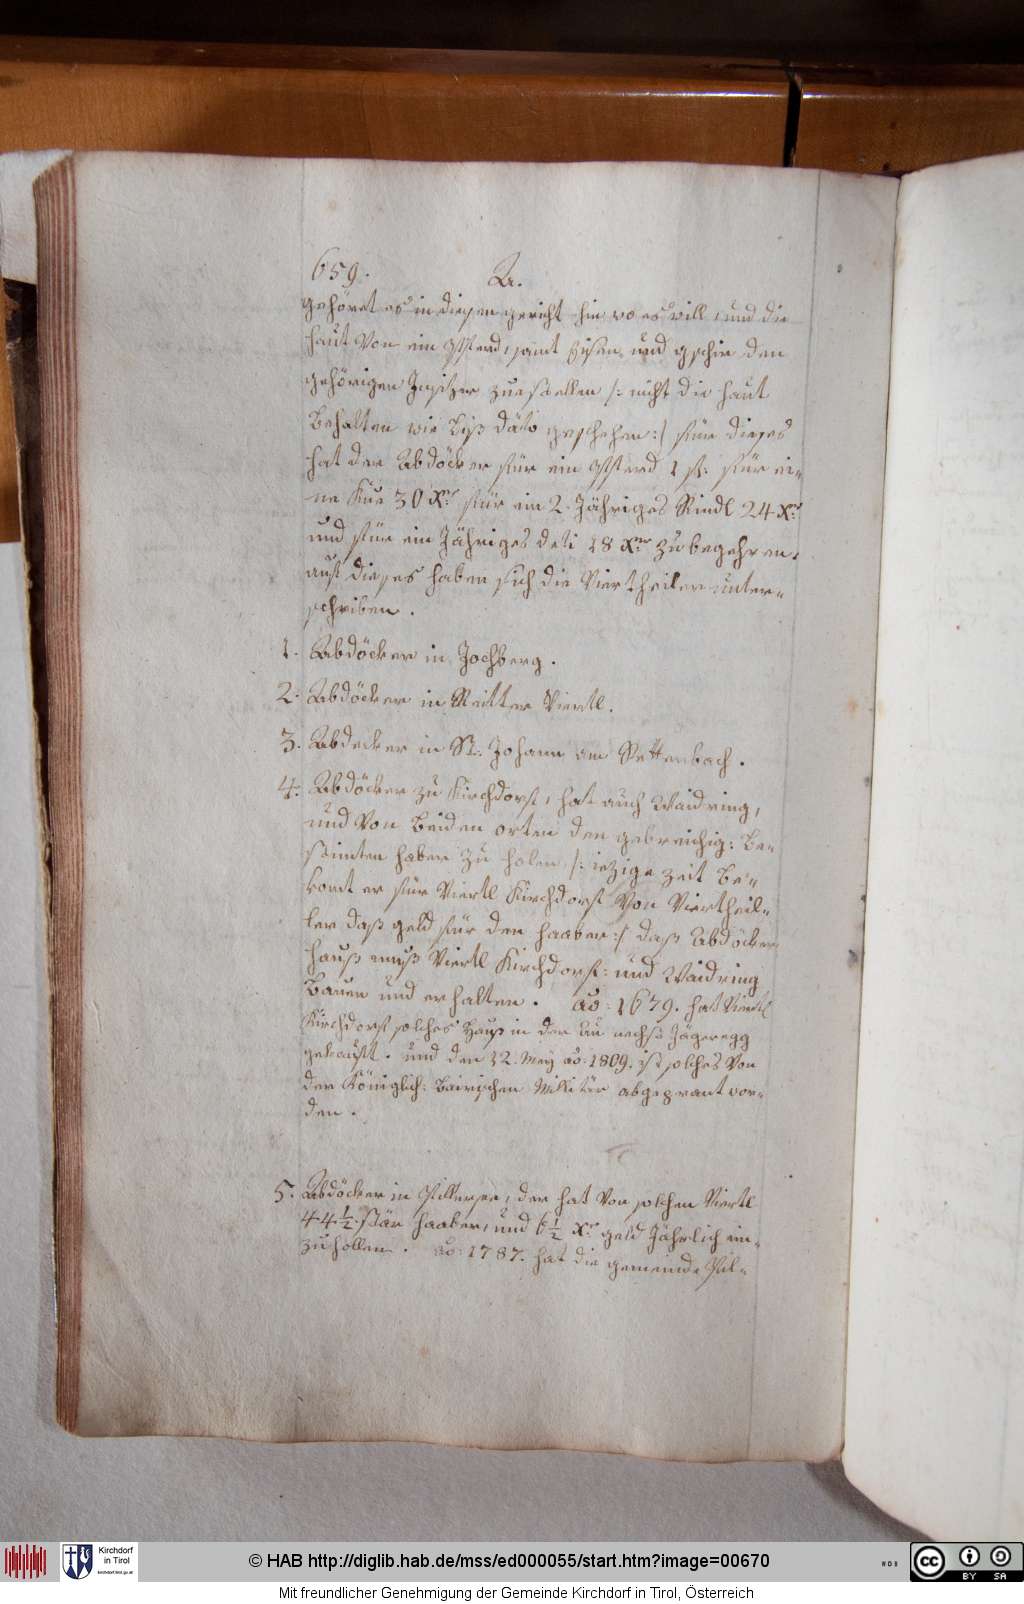 659. A.
gehöret es in diesen gericht hin wo es will, und die
haut Von ein Pfferd, samt Eisen, und gschir den
gehörigen Insizer zuestellen /: nicht die haut
Behalten wie biß dato geschehen :/ für dieses
hat der Abdöcker für ein Pfferd 1 f: für ei-
ne Kue 30 Xr für ein 2. Jähriges Rindl 24 Xr
und für ein Jähriges deti 18 Xer zu begehren,
auf dieses haben sich die Viertheiler unter-
schriben.
1. Abdöcker in Jochberg.
2. Abdöcker in Reitter Viertl.
3. Abdecker in St: Johann am Lettenbach.
4. Abdöcker zu Kirchdorf, hat auch Waidring,
und Von beiden orten den gebreichig: be-
stimten haber zu holen /: iezige zeit be-
komt er für Viertl Kirchdorf Von Viertheil-
ler daß geld für den haaber :/ daß Abdöcker
hauß muß Viertl Kirchdorf: und Waidring
Bauen und erhalten. ao: 1679. hat Viertl
Kirchdorf solches Hauß in der Au nechst Jägeregg
gekauft. und den 12. Mey ao: 1809. ist solches Von
der Königlich: Bairischen Militär abgeprant wor-
den.
5. Abdöcker in Pillersee, der hat Von solchen Viertl
44 1/2 stär haaber, und 6 1/2 Xr geld Jährlich ein-
zuhollen. ao: 1787. hat die gemeinde Pil-
Kirchdorf
in Tirol
kirchdorf.tirol.gv.at
© HAB http://diglib.hab.de/mss/ed000055/start.htm?image=00670
WDB
CC BY SA
Mit freundlicher Genehmigung der Gemeinde Kirchdorf in Tirol, Österreich